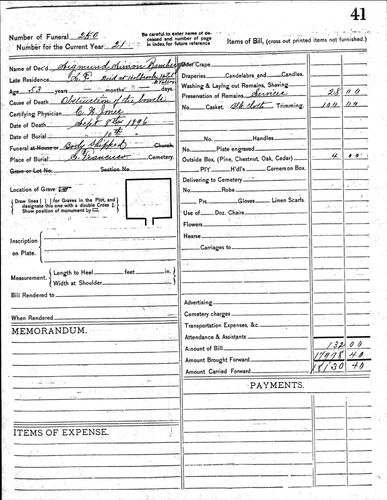 41
Number of Funeral 250
Number for the Current Year 21
Be careful to enter name of deceased and number of page in index for future reference
Items of Bill, (cross out printed items not furnished.)
Name of Dec'd Sigmund Simon
Late Residence S. F. Died at Holbrook
Age 53 years - months - days
Cause of Death Obstruction of the bowels
Certifying Physician C. W. Jones
Date of Death Sept 8th 1896
Date of Burial " 10th
Funeral at House or Body Shipped Church.
Place of Burial S. Francisco Cemetery.
Grave or Lot No. Section No.
Location of Grave
Draw lines [ ] for Graves in the Plot, and designate this one with a double Cross
Show position of monument by
Inscription
on Plate.
Measurement. Length to Heel feet in.
Width at Shoulder
Bill Rendered to
When Rendered
MEMORANDUM.
ITEMS OF EXPENSE.
Crape
Draperies Candelabra and Candles.
Washing & Laying out Remains, Shaving
Preservation of Remains, Services 28 00
No. Casket, Blk cloth Trimming. 100 00
No. Handles
Plate engraved
Outside Box, (Pine, Chestnut, Oak, Cedar) 4 00
P'lY H'd's Corners on Box.
Delivering to Cemetery
No. Robe
Prs. Gloves Linen Scarfs.
Use of Doz. Chairs
Flowers
Hearse
Carriages to
Advertising
Cemetery charges
Transportation Expenses, &c
Attendance & Assistants
Amount of Bill 132 00
Amount Brought Forward 17998 40
Amount Carried Forward 18130 40
PAYMENTS.